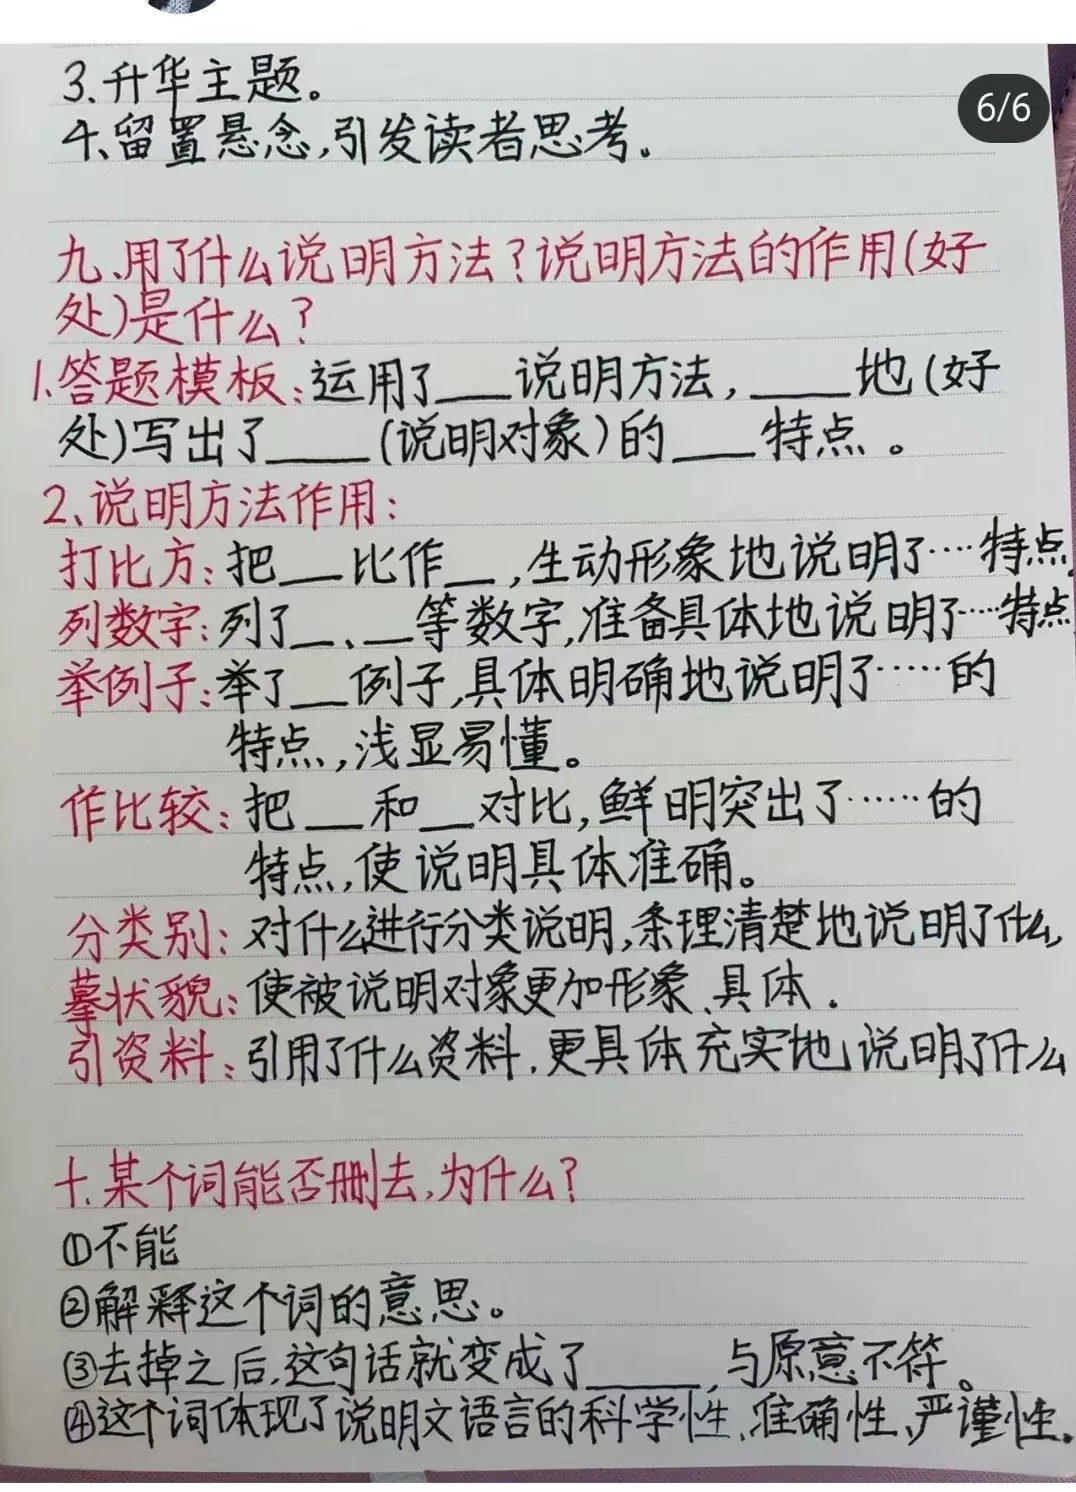 3.升华主题。
6/6
4、留置悬念,引发读者思考。
九、用了什么说明方法?说明方法的作用(好
处)是什么?
1.答题模板:运用了___说明方法,____地(好
处)写出了____(说明对象)的___特点。
2、说明方法作用:
打比方:把__比作__,生动形象地说明了····特点,
列数字:列了__、__等数字,准备具体地说明了····特点
举例子:举了__例子,具体明确地说明了·····的
特点,浅显易懂。
作比较:把__和__对比,鲜明突出了······的
特点,使说明具体准确。
分类别:对什么进行分类说明,条理清楚地说明了什么,
摹状貌:使被说明对象更加形象、具体.
引资料:引用了什么资料.更具体充实地说明了什么
十.某个词能否删去,为什么?
①不能
②解释这个词的意思。
③去掉之后,这句话就变成了_____,与原意不符。
④这个词体现了说明文语言的科学性、准确性、严谨性。